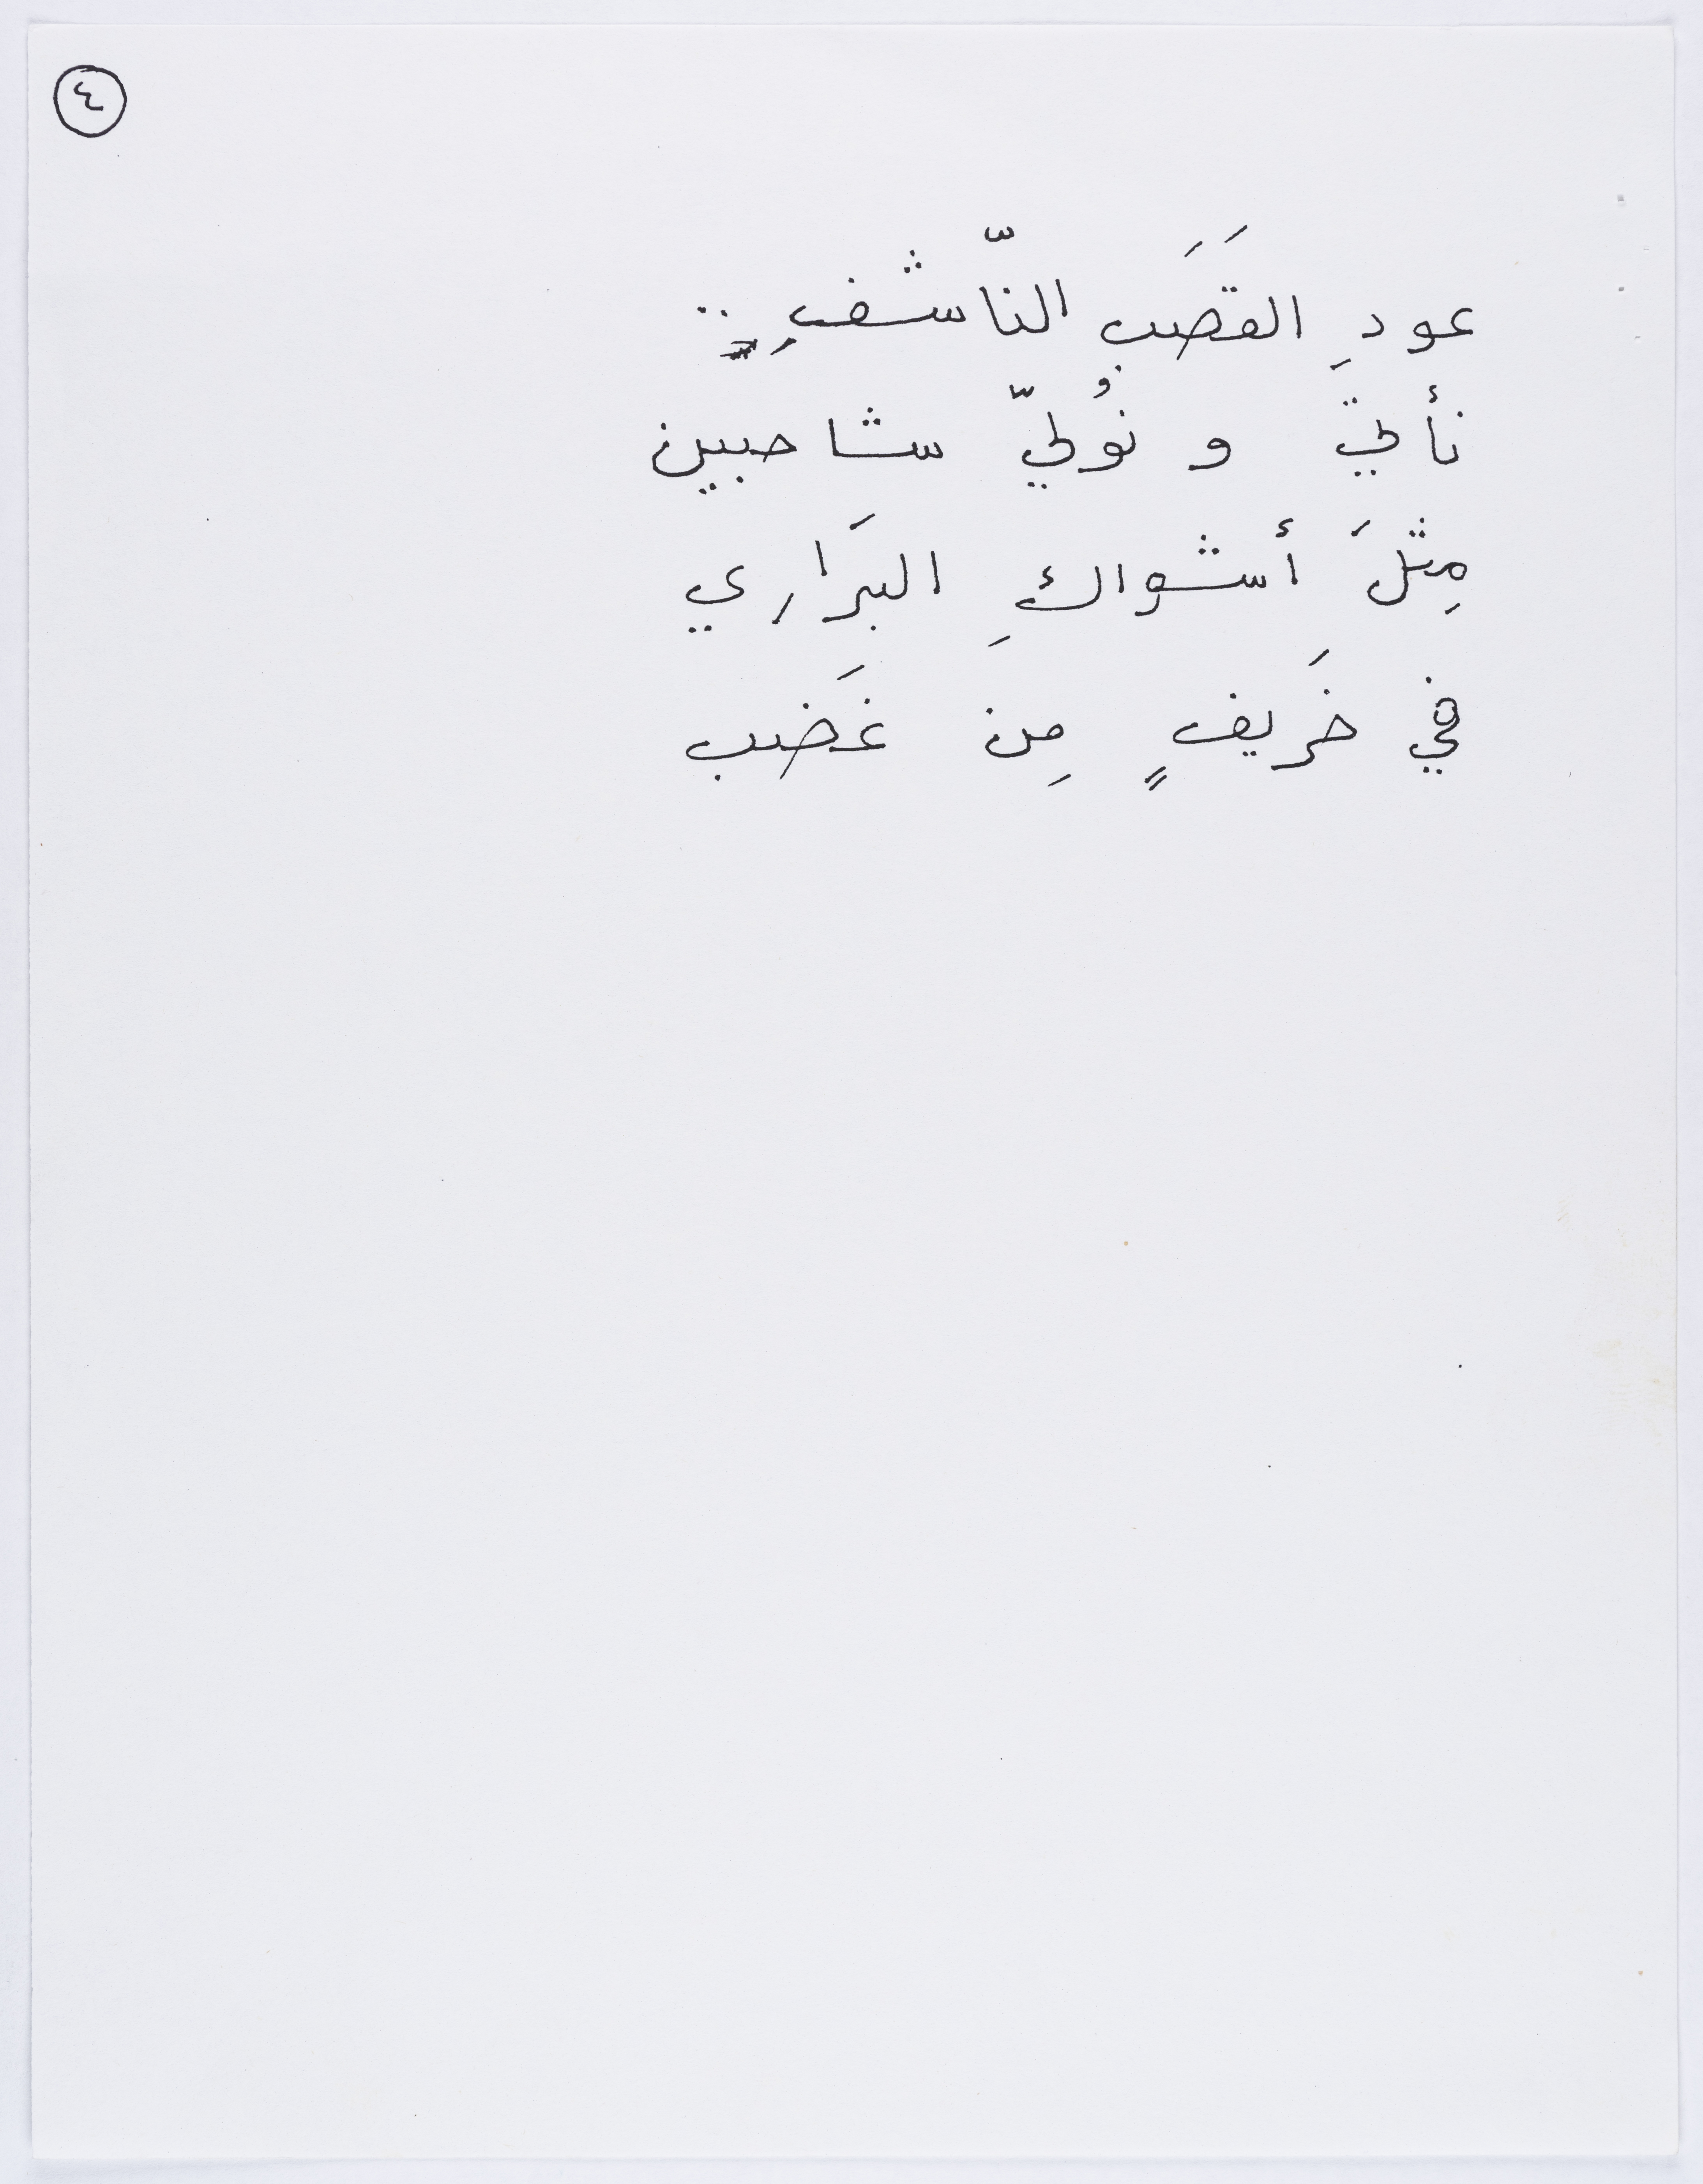 ٤
عودِ القَصَب النّاشفِ ..
نأتي و نُولّي شاحبين
مِثلَ أشواكِ البَراري
في خَريفٍ مِن غَضَب